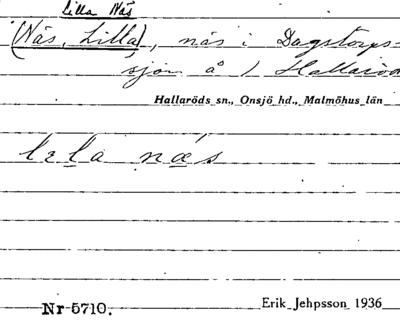 Lilla Näs
(Näs, Lilla), näs i Dagstorps-
sjön å / Hallaröd
Hallaröds sn., Onsjö hd., Malmöhus län
næs
Nr 5710.
Erik Jehpsson 1936